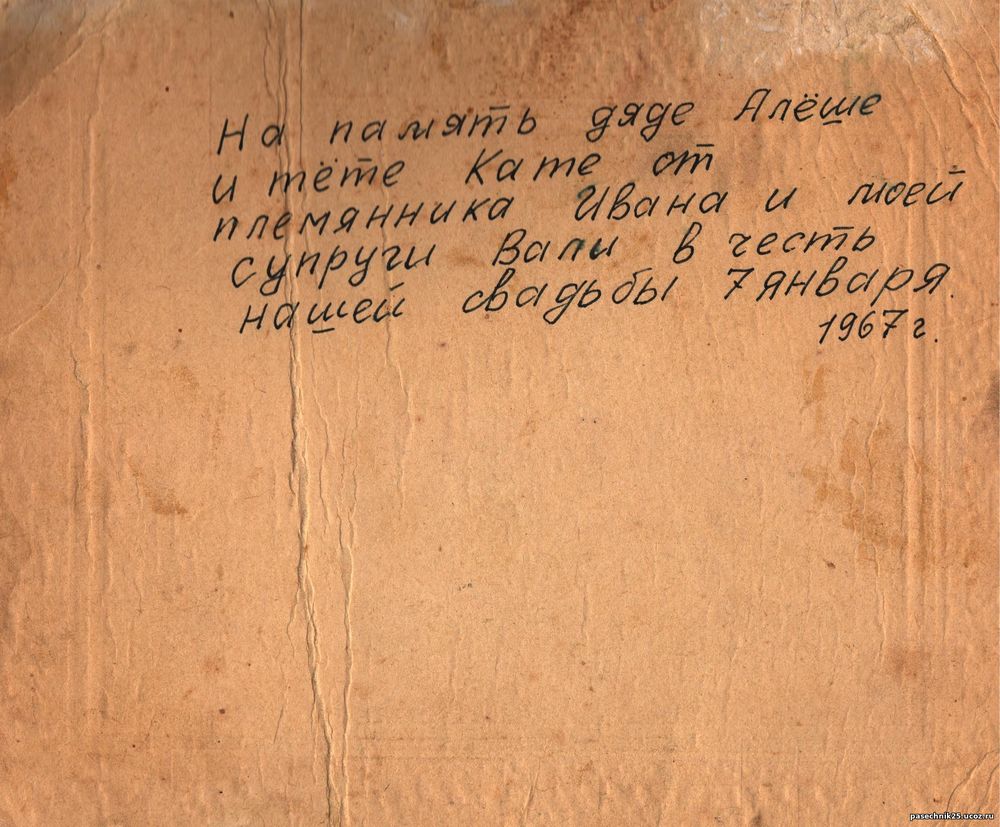 На память дяде Алёше
и тёте Кате от
племянника Ивана и моей
супруги Вали в честь
нашей свадьбы 7 января.
1967 г.
pasechnik25.ucoz.ru